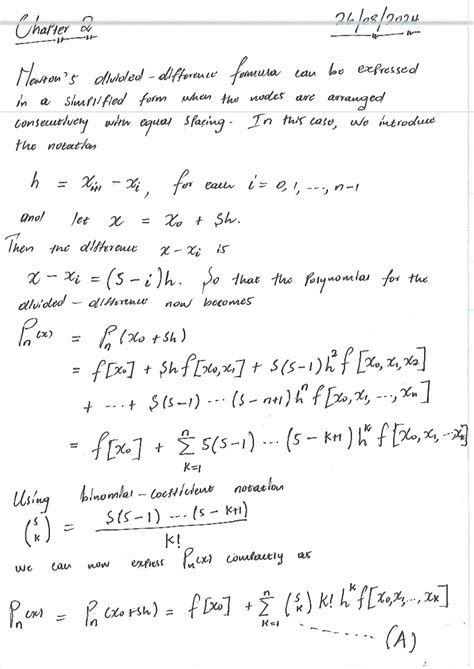 Chapter 2 26/08/2024
Newton's divided-difference formula can be expressed
in a simplified form when the nodes are arranged
consecutively with equal spacing. In this case, we introduce
the notation
h = x_{i+1} - x_i, for each i = 0, 1, ..., n-1
and let x = x_0 + sh.
Then the difference x - x_i is
x - x_i = (s - i)h. So that the polynomial for the
divided-difference now becomes
P_n(x) = P_n(x_0 + sh)
= f[x_0] + sh f[x_0, x_1] + s(s-1)h^2 f[x_0, x_1, x_2]
+ ... + s(s-1) ... (s-n+1) h^n f[x_0, x_1, ..., x_n]
= f[x_0] + Σ_{k=1}^{n} s(s-1) ... (s-k+1) h^k f[x_0, x_1, ..., x_k]
Using binomial-coefficient notation
(s k) = s(s-1) ... (s-k+1) / k!
we can now express P_n(x) compactly as
P_n(x) = P_n(x_0+sh) = f[x_0] + Σ_{k=1}^{n} (s k) k! h^k f[x_0, x_1, ..., x_k]
........ (A)